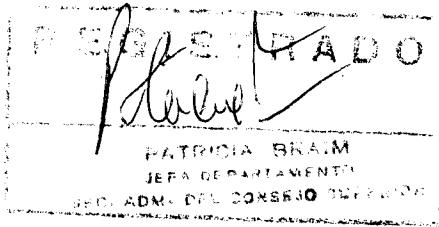 REGISTRADO
PATRICIA BRAIM
JEFA DEPARTAMENTO
ADM. DEL CONSEJO SUPERIOR